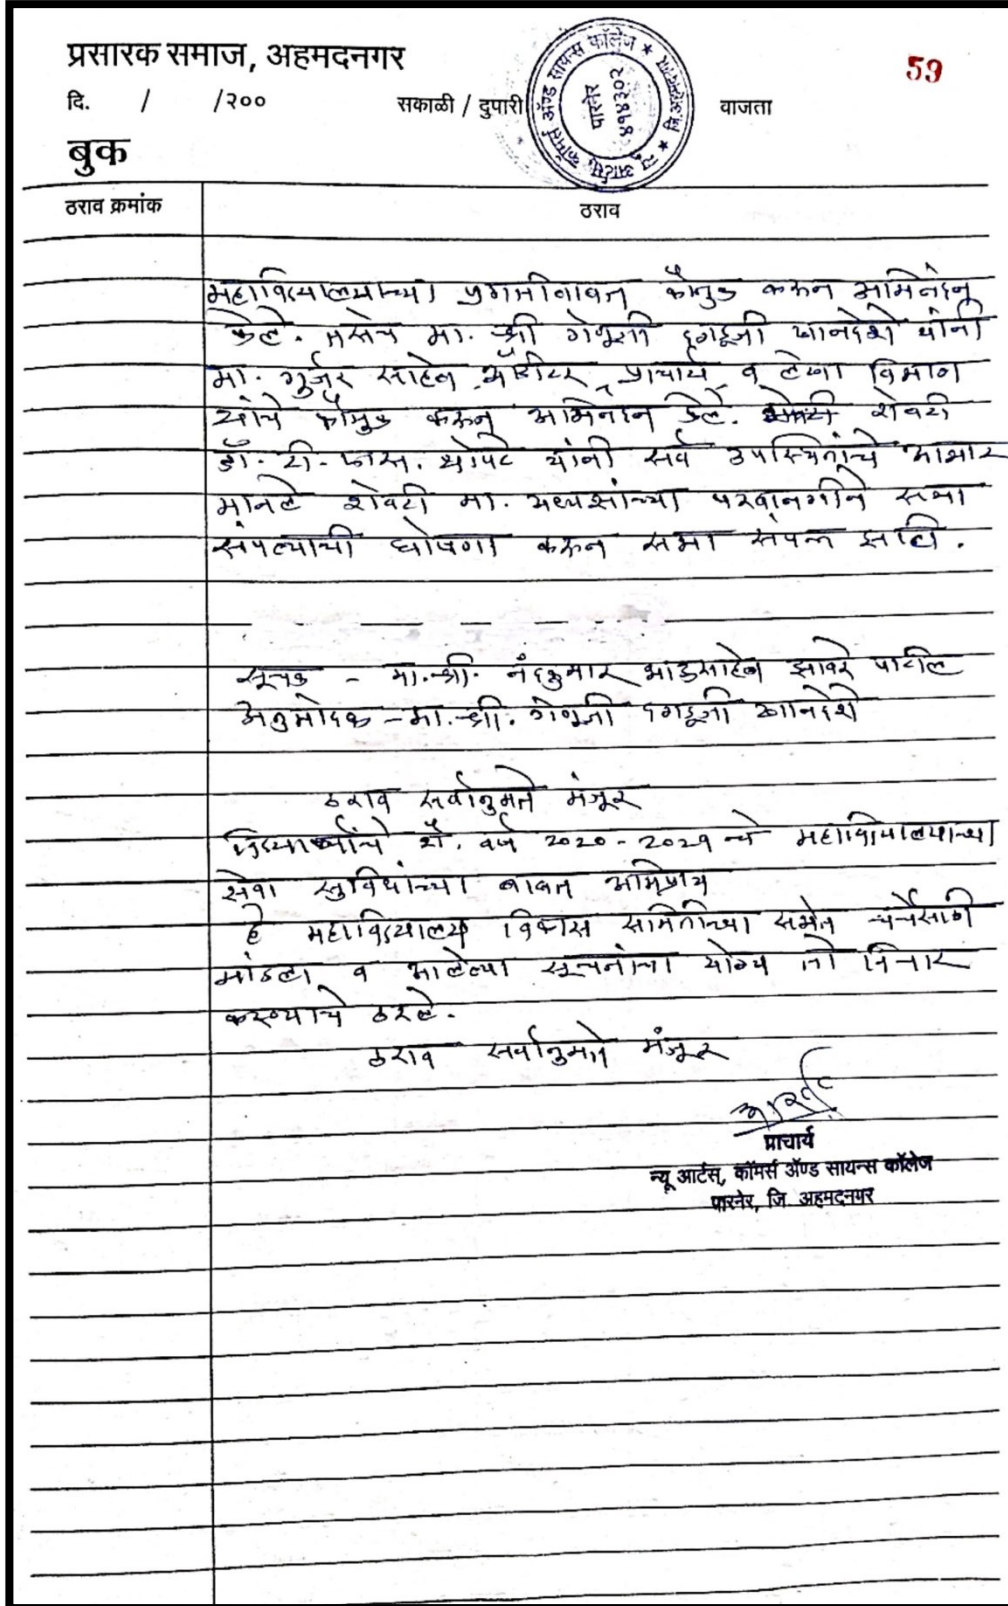 प्रसारक समाज, अहमदनगर
59
दि. / /२०० सकाळी / दुपारी वाजता
न्यू आर्टस्, कॉमर्स ॲण्ड सायन्स कॉलेज
पारनेर
४१४३०२
बुक
ठराव क्रमांक ठराव
महाविद्यालयाच्या प्रगतीबाबत कौतुक करून अभिनंदन
केले. तसेच मा. श्री गेणूजी दगडूजी खानदेशे यांनी
मा. गुर्जर साहेब ऑडीटर, प्राचार्य व लेखा विभाग
यांचे कौतुक करून अभिनंदन केले. शेवटी
डॉ. टी. एस. थोपटे यांनी सर्व उपस्थितांचे आभार
मानले शेवटी मा. अध्यक्षांच्या परवानगीने सभा
संपल्याची घोषणा करून सभा संपन्न झाली.
सूचक - मा. श्री. नंदकुमार भाऊसाहेब झावरे पाटील
अनुमोदक - मा. श्री. गेणूजी दगडूजी खानदेशे
ठराव सर्वानुमते मंजूर
विद्यार्थ्यांचे शै. वर्ष २०२०-२०२१ चे महाविद्यालयाच्या
सेवा सुविधांच्या बाबत अभिप्राय
हे महाविद्यालय विकास समितीच्या सभेत चर्चेसाठी
मांडला व आलेल्या सूचनांचा योग्य तो विचार
करण्याचे ठरले.
ठराव सर्वानुमते मंजूर
प्राचार्य
न्यू आर्टस्, कॉमर्स ॲण्ड सायन्स कॉलेज
पारनेर, जि. अहमदनगर